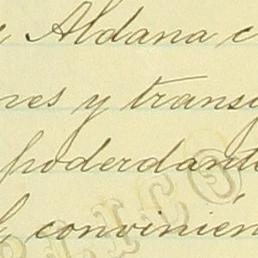 Aldana c
nes y trans
poderdante
convinién